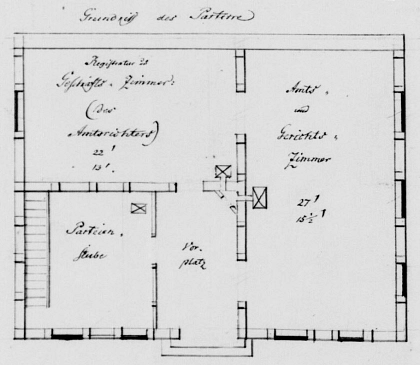 Grundriß des Parterre
Registratur u
Geschäfts-Zimmer
(des
Amtsrichters)
22'
13'.
Amts-
und
Gerichts-
Zimmer
27'
15½'
Parteien-
stube
Vor-
platz